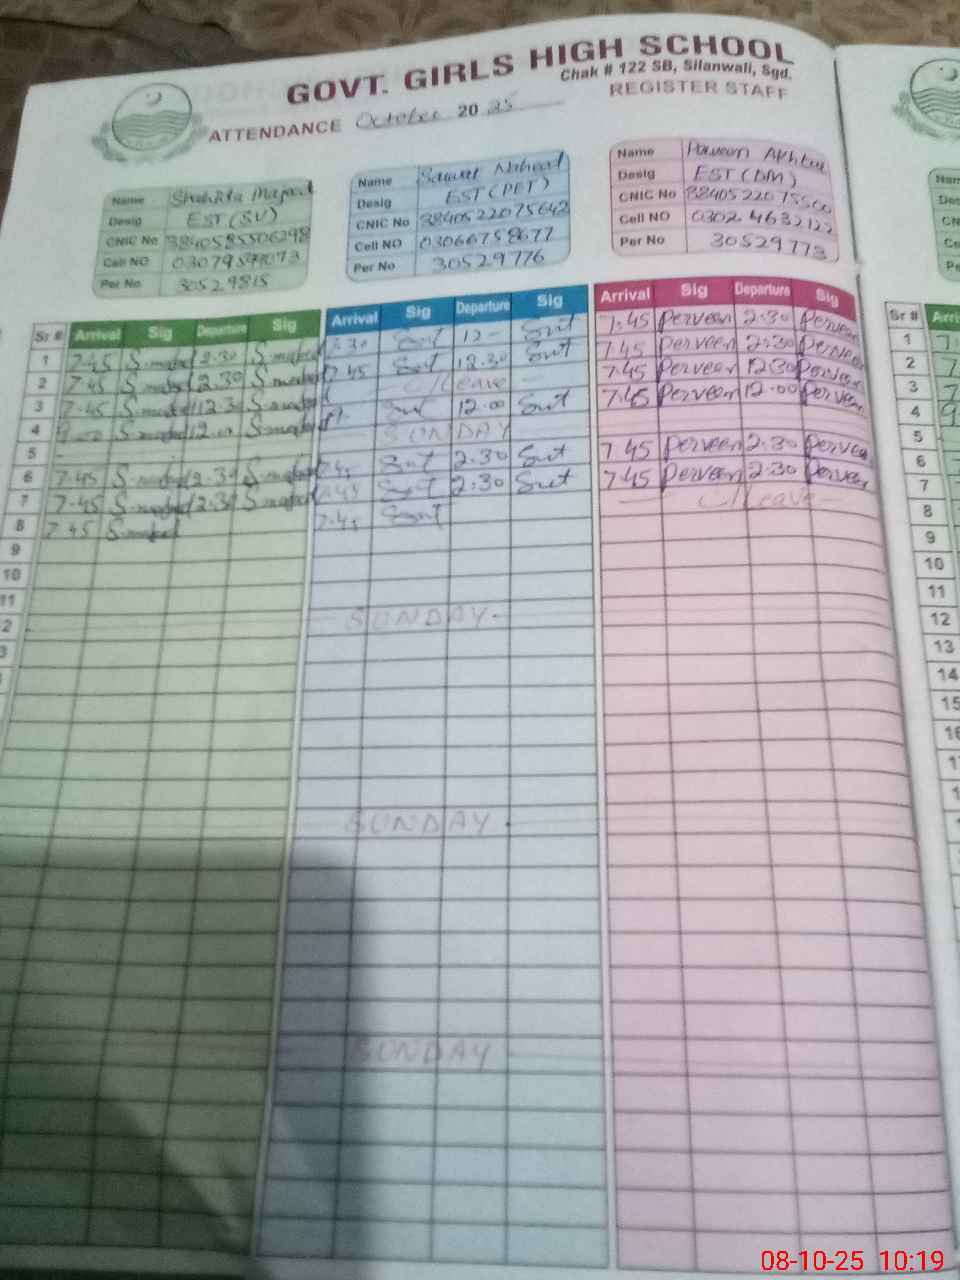 GOVT. GIRLS HIGH SCHOOL
Chak # 122 SB, Silanwali, Sgd.
ATTENDANCE October 20 25 REGISTER STAFF
Name Shahida Majeed
Desig EST (SV)
CNIC No 3840585506298
Cell NO
Per No 30529815
Name
Desig EST (PET)
CNIC No 3840522075642
Cell NO 03066758677
Per No 30529776
Name Parveen Akhtar
Desig EST (DM)
CNIC No 3840522075500
Cell NO 0302 4632122
Per No 30529773
Sr # Arrival Sig Departure Sig Arrival Sig Departure Sig Arrival Sig Departure Sig
1 7.45 S.majeed 2.30 S.majeed 7.30 12- 7.45 Perveen 2.30 Perveen
2 7.45 S.majeed 2.30 S.majeed 7.45 12.30 7.45 Perveen 2.30 Perveen
3 7.45 S.majeed 12.3 S.majeed C/Leave 7.45 Perveen 12.30 Perveen
4 9.00 S.majeed 12.00 S.majeed 12.00 7.45 Perveen 12.00 Perveen
5 SUNDAY
6 7.45 S.majeed 2.30 S.majeed 7.45 2.30 7.45 Perveen 2.30 Perveen
7 7.45 S.majeed 2.30 S.majeed 7.45 2.30 7.45 Perveen 2.30 Perveen
8 7.45 S.majeed 7.45 C/Leave
9
10
11
2 SUNDAY
3
SUNDAY
SUNDAY
Sr #
1
2
3
4
5
6
7
8
9
10
11
12
13
14
15
08-10-25 10:19